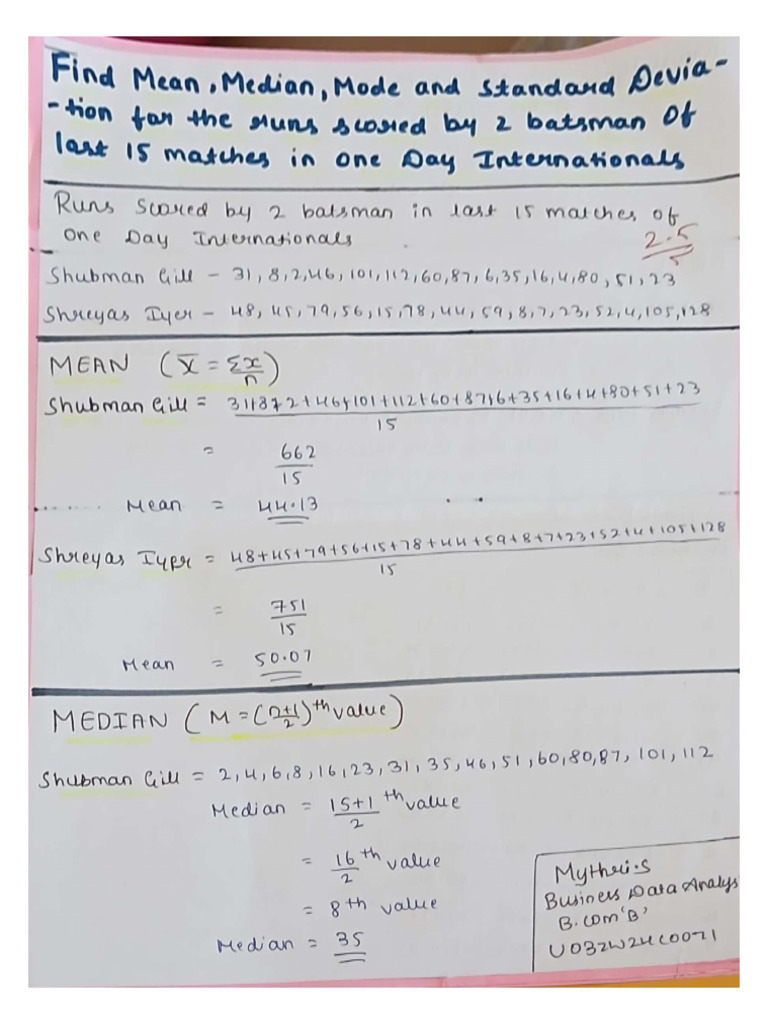 Find Mean, Median, Mode and Standard Devia-
-tion for the runs scored by 2 batsman Of
last 15 matches in One Day Internationals
Runs Scored by 2 batsman in last 15 matches of
One Day Internationals
2.5
5
Shubman Gill - 31, 8, 2, 46, 101, 112, 60, 87, 6, 35, 16, 4, 80, 51, 23
Shreyas Iyer - 48, 45, 79, 56, 15, 78, 44, 59, 8, 7, 23, 52, 4, 105, 128
MEAN (x̄ = Σx/n)
Shubman Gill = 31+8+2+46+101+112+60+87+6+35+16+4+80+51+23
15
= 662
15
Mean = 44.13
Shreyas Iyer = 48+45+79+56+15+78+44+59+8+7+23+52+4+105+128
15
= 751
15
Mean = 50.07
MEDIAN (M = (n+1/2)th value)
Shubman Gill = 2, 4, 6, 8, 16, 23, 31, 35, 46, 51, 60, 80, 87, 101, 112
Median = 15+1 th value
2
= 16 th value
2
= 8th value
Median = 35
Mythri.S
Business Data Analys
B.com 'B'
U03ZW24C0071